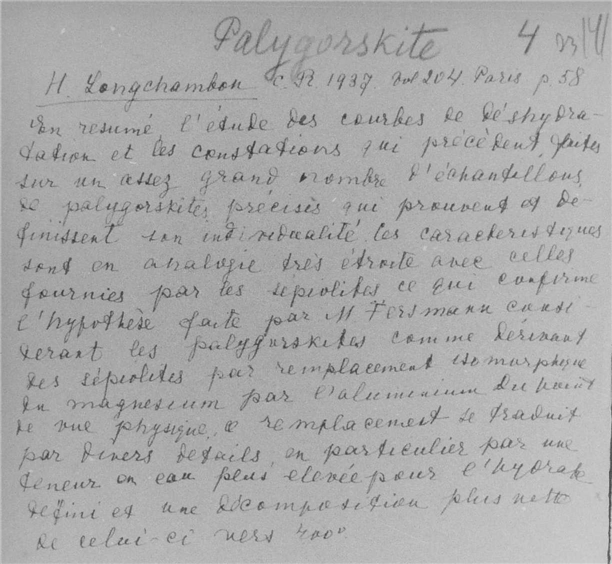 Palygorskite 4
H. Longchambon C. R 1937 Vol 204. Paris p. 58
En resumé, l'étude des courbes de déshydra-
tation et les constations qui précèdent faites
sur un assez grand nombre d'échantillons
de palygorskites, précisis qui prouvent et dé-
finissent son individualité, les caracteristiques
sont en analogie très étroite avec celles
fournies par les sepiolites ce qui confirme
l'hypothèse faite par M Fersmann consi-
derant les palygorskites comme derivant
des sépiolites par remplacement isomorphique
du magnesium par l'aluminium Du point
de vue physique, ce remplacement se traduit
par divers details en particulier par une
teneur en eau plus elevée pour l'hydrate
defini et une décomposition plus nette
de celui-ci vers 400°